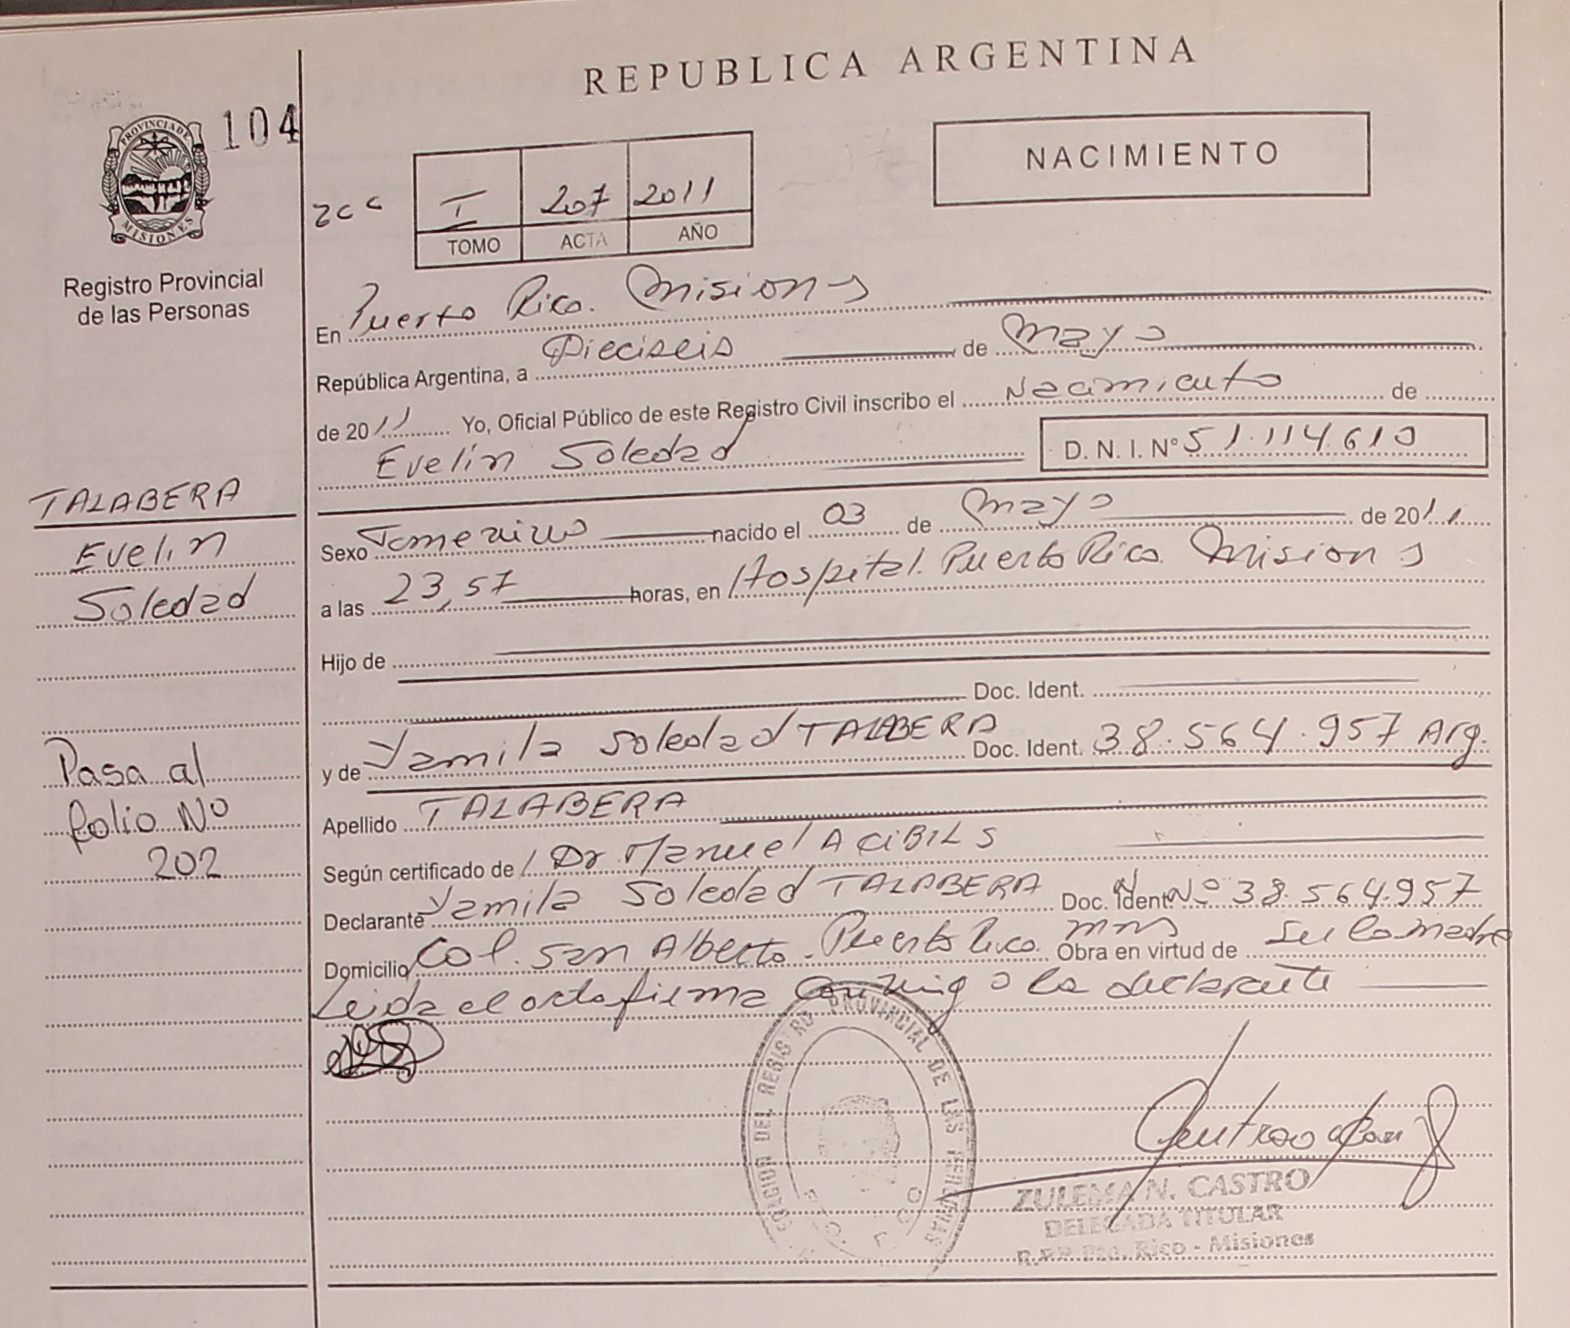 REPUBLICA ARGENTINA
PROVINCIA DE
MISIONES
104
NACIMIENTO
I 207 2011
TOMO ACTA AÑO
Registro Provincial
de las Personas
En Puerto Rico. Misiones
República Argentina, a Dieciseis de Mayo
de 2011 Yo, Oficial Público de este Registro Civil inscribo el Nacimiento de
Evelin Soledad D. N. I. Nº 51.114.610
TALABERA
Evelin
Soledad
Sexo Femenino nacido el 03 de Mayo de 2011
a las 23,57 horas, en Hospital. Puerto Rico. Misiones
Hijo de
Doc. Ident.
y de Yamila Soledad TALABERA Doc. Ident. 38.564.957 Arg.
Pasa al
folio Nº
202
Apellido TALABERA
Según certificado de Dr. Manuel ACIBILS
Declarante Yamila Soledad TALABERA Doc. Ident Nº 38.564.957
Domicilio Col. San Alberto. Puerto Rico. Obra en virtud de Ser la madre
Leida el acta firma conmigo la declarante
REGISTRO PROVINCIAL DE LAS PERSONAS
ZULEMA N. CASTRO
DELEGADA TITULAR
R.P.P. Pto. Rico - Misiones